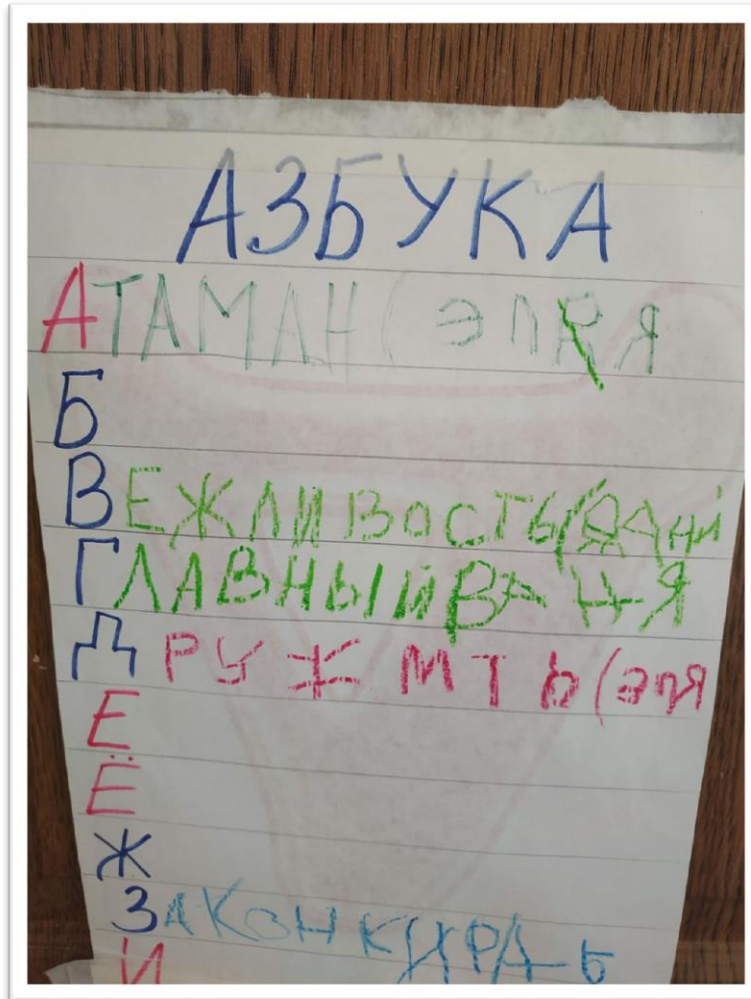 АЗБУКА
АТАМАН (ЭЛЯ
Б
ВЕЖЛИВОСТЬ (
ГЛАВНЫЙ ВАНЯ
ДРУЖМТЬ (ЭЛЯ
Е
Ё
Ж
ЗАКОН
И